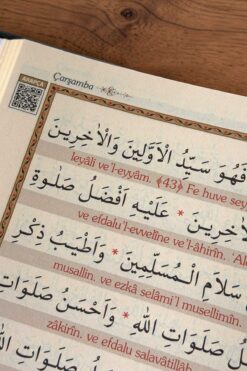 ARAPÇA
Çarşamba
فَهُوَ سَيِّدُ الْاَوَّلٖينَ وَالْاٰخِرٖينَ
leyâli ve'l-eyyâm. ﴾43﴿ Fe huve sey
وَالْاٰخِرٖينَ * عَلَيْهِ اَفْضَلُ صَلٰوةِ
ve efdalu'l-evvelîne ve'l-âhirîn. 'Ale
سَلَامِ الْمُسْلِمٖينَ * وَاَطْيَبُ ذِكْرِ
musallîn. ve ezkâ selâmi'l musellimîn.
صَلَوَاتِ اللّٰهِ * وَاَحْسَنُ صَلَوَاتِ
zâkirîn. ve efdalu salavâtillâh
صَلَوَاتِ اللّٰهِ